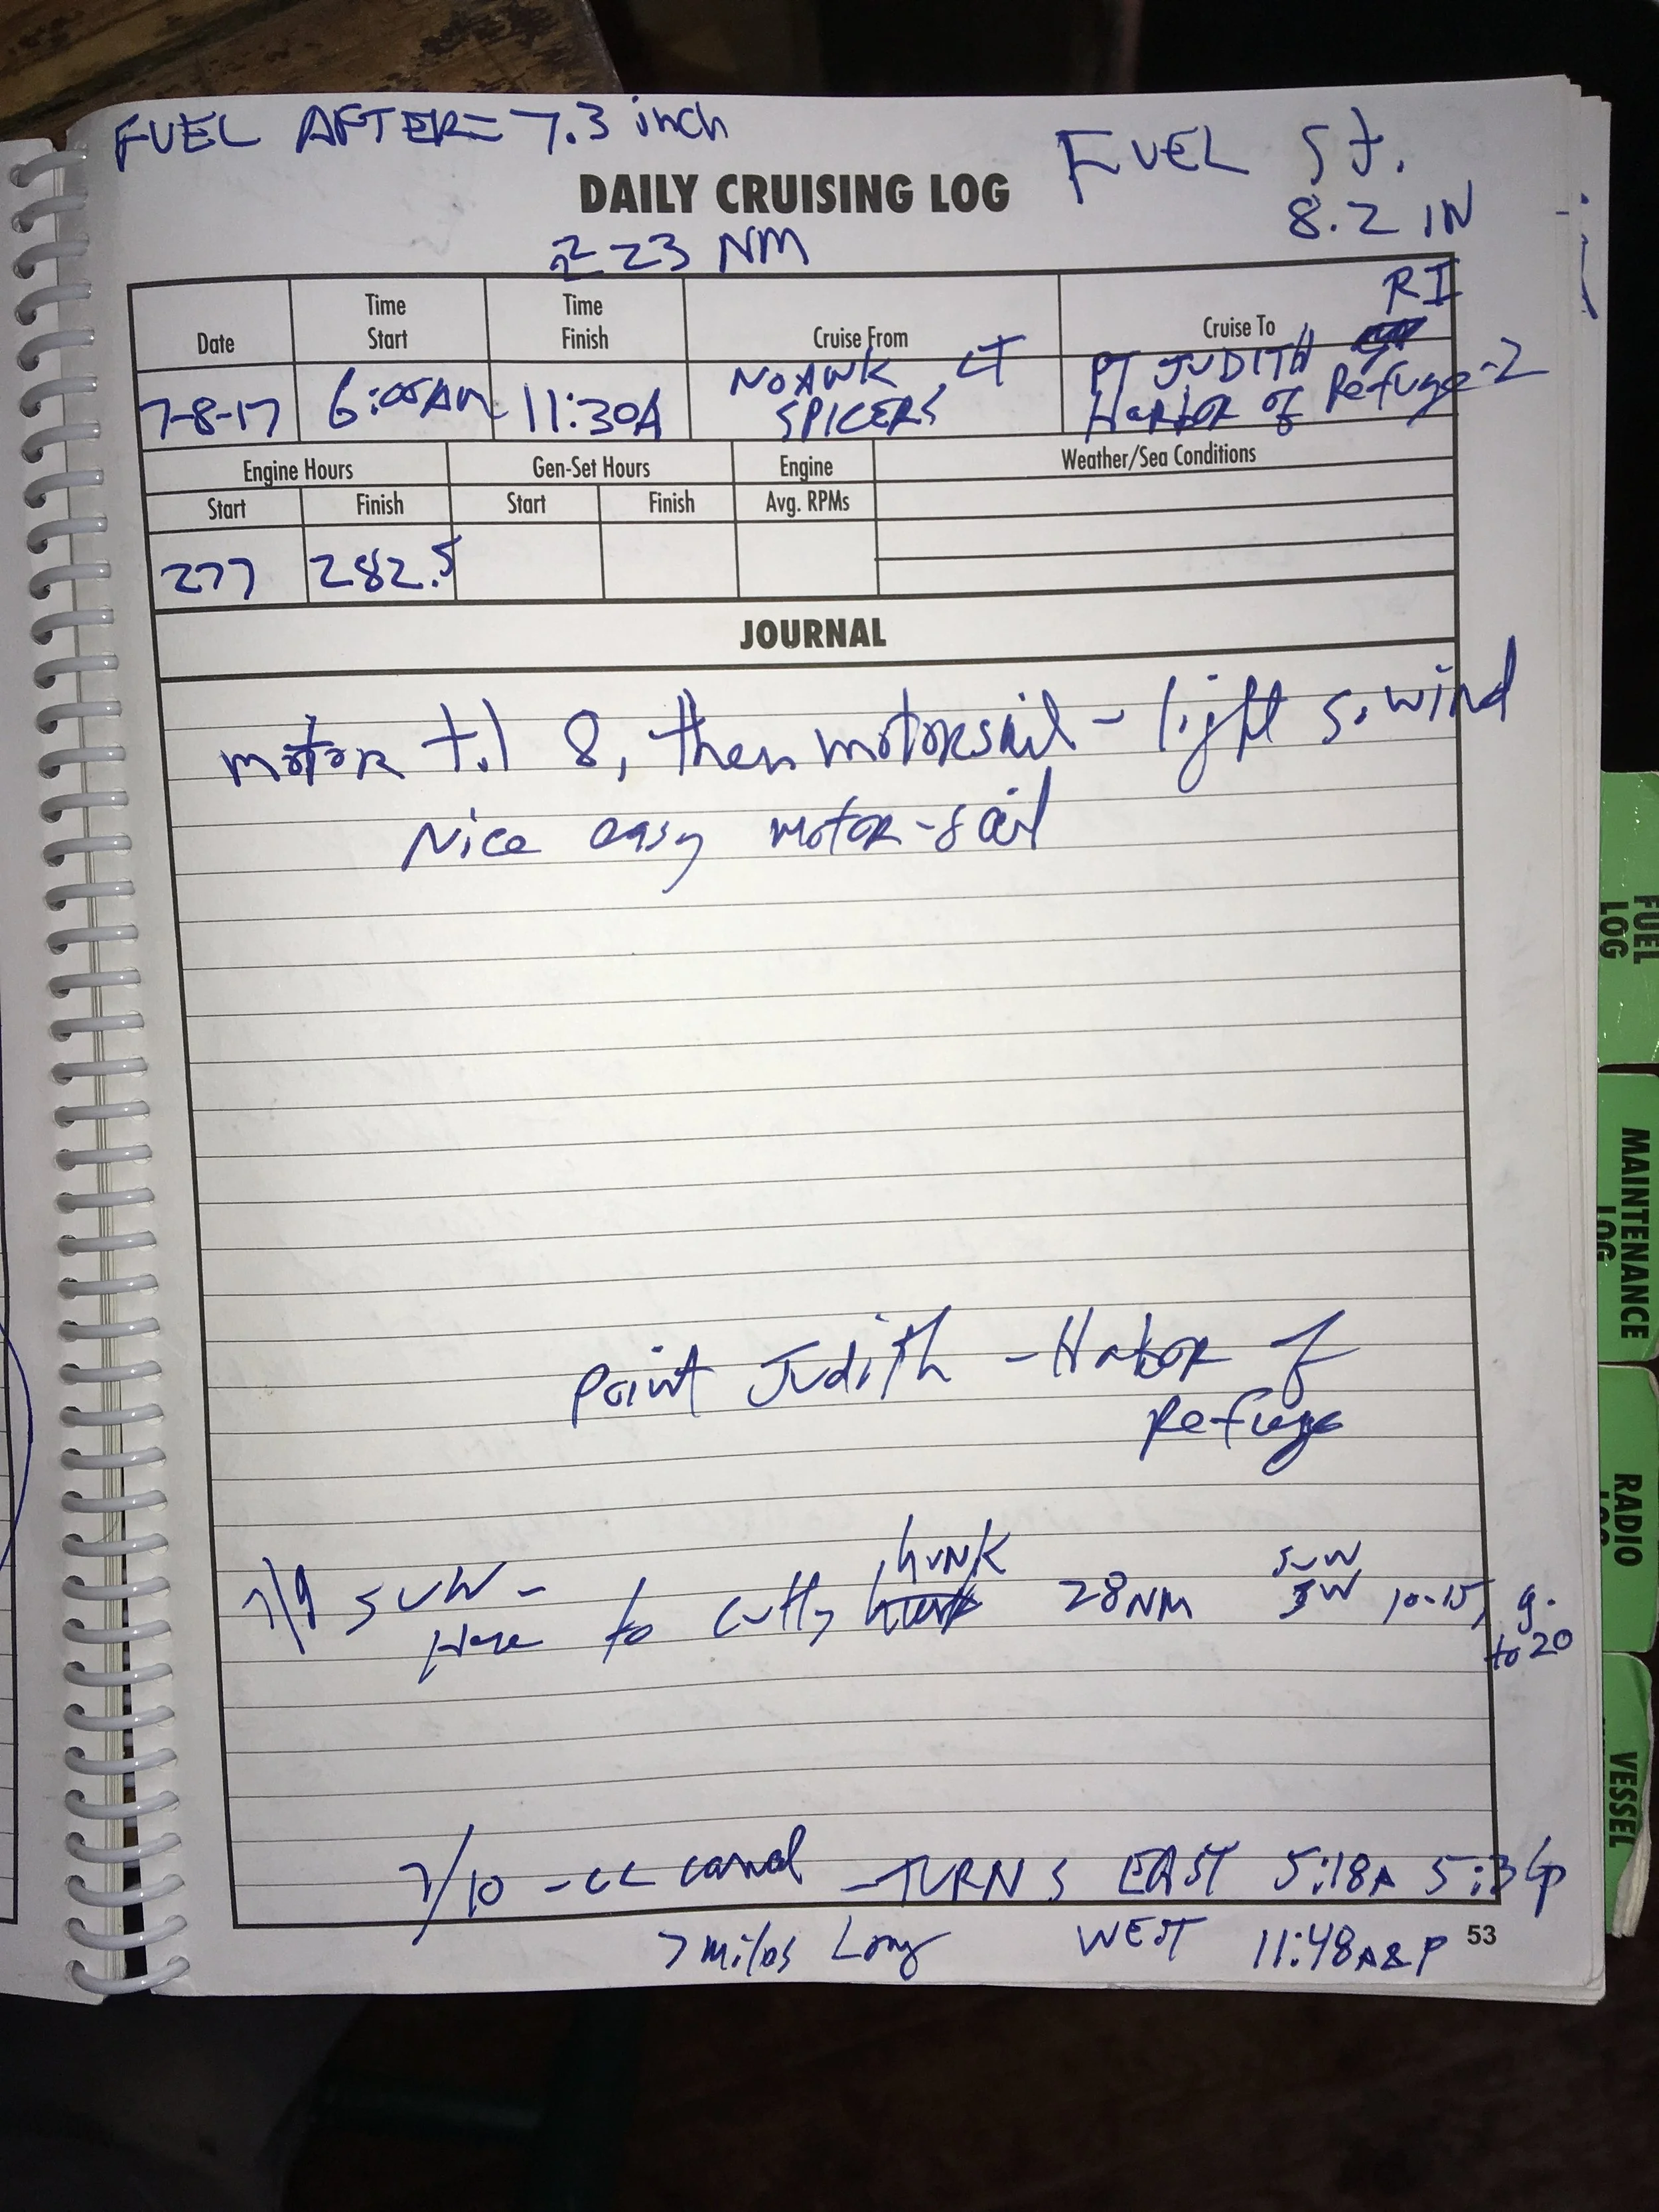 FUEL AFTER = 7.3 inch
FUEL St.
8.2 IN
DAILY CRUISING LOG
23 NM
Date
Time Start
Time Finish
Cruise From
Cruise To
RI
7-8-17
11:30A
NOAWK, CT
SPICERS
PT JUDITH
Harbor of Refuge-2
Engine Hours
Gen-Set Hours
Engine
Weather/Sea Conditions
Start
Finish
Start
Finish
Avg. RPMs
277
282.5
JOURNAL
motor til 8, then motorsail - light S. wind
Nice easy motor-sail
Point Judith - Habor of
Refuge
7/9 SUN -
Here to cuttyhunk 28NM SW 10-15, g.
to 20
7/10 - CC canal - TURNS EAST 5:18A 5:36p
7 miles Long WEST 11:48A&P
53
FUEL LOG
MAINTENANCE LOG
RADIO LOG
VESSEL